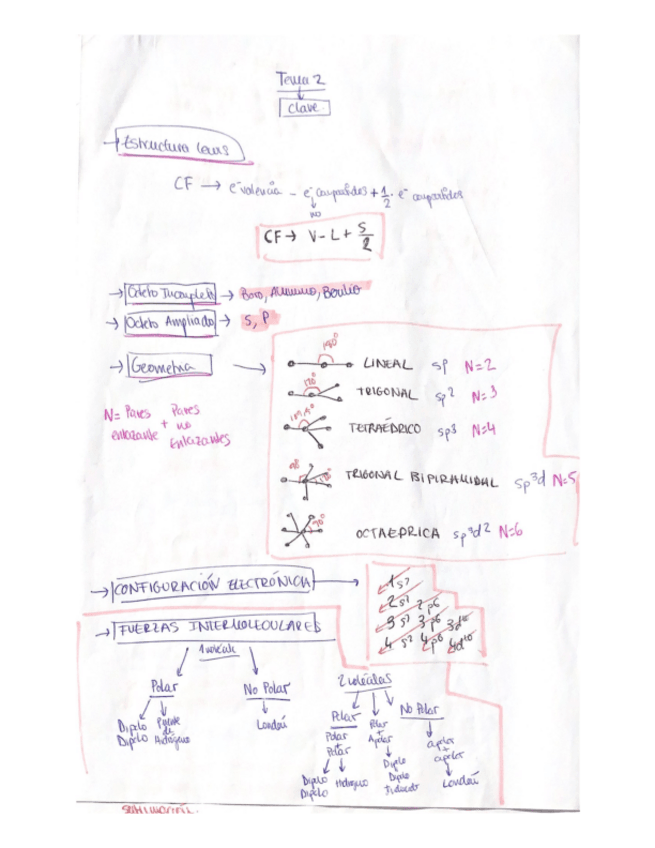 Tema 2
clave
→ Estructura Lewis
CF → e⁻ valencia - e⁻ compartidos + 1/2 · e⁻ compartidos
no
CF → V - L + S/2
→ Octeto Incompleto → Boro, Aluminio, Berilio
→ Octeto Ampliado → S, P
→ Geometria →
180° LINEAL sp N=2
120° TRIGONAL sp² N=3
109,5° TETRAÉDRICO sp³ N=4
N= Pares enlazante + Pares no enlazantes
TRIGONAL BIPIRAMIDAL sp³d N=5
90° OCTAEDRICA sp³d² N=6
→ CONFIGURACIÓN ELECTRÓNICA →
1s²
2s² 2p⁶
3s² 3p⁶ 3d¹⁰
4s² 4p⁶ 4d¹⁰
→ FUERZAS INTERMOLECULARES
1 molécula
Polar
No Polar
Dipolo Dipolo
Puente de Hidrógeno
London
2 moléculas
Polar
Polar + Polar
Polar + Apolar
No Polar
apolar + apolar
Dipolo Dipolo
Hidrógeno
Dipolo Dipolo Inducido
London